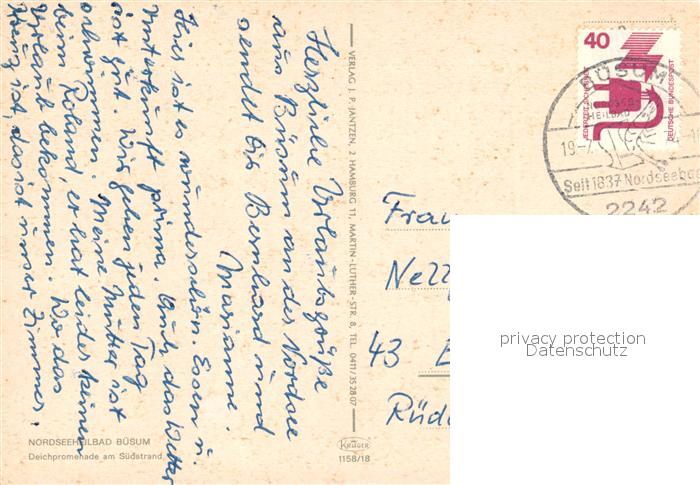 Herzliche Urlaubsgrüße
aus Büsum an der Nordsee
sendet Dir Bernhard und
Marianne.
Hier ist es wunderschön. Essen u.
Unterkunft prima. Auch das Wetter
ist gut. Wir gehen jeden Tag
schwimmen. Meine Mutter ist
beim Roland, er hat leider keinen
Urlaub bekommen. Wo das
Kreuz ist, das ist unser Zimmer.
NORDSEEHEILBAD BÜSUM
Deichpromenade am Südstrand
VERLAG J. P. JANTZEN, 2 HAMBURG 11, MARTIN-LUTHER-STR. 8, TEL. 0411/35 28 07
KRÜGER
1158/18
40
JEDERZEIT SICHERHEIT
DEUTSCHE BUNDESPOST
BÜSUM
NORDSEE-
HEILBAD
19.-7
Seit 1837 Nordseebad
2242
Frau
Nelly
43 E
Rüd
privacy protection
Datenschutz